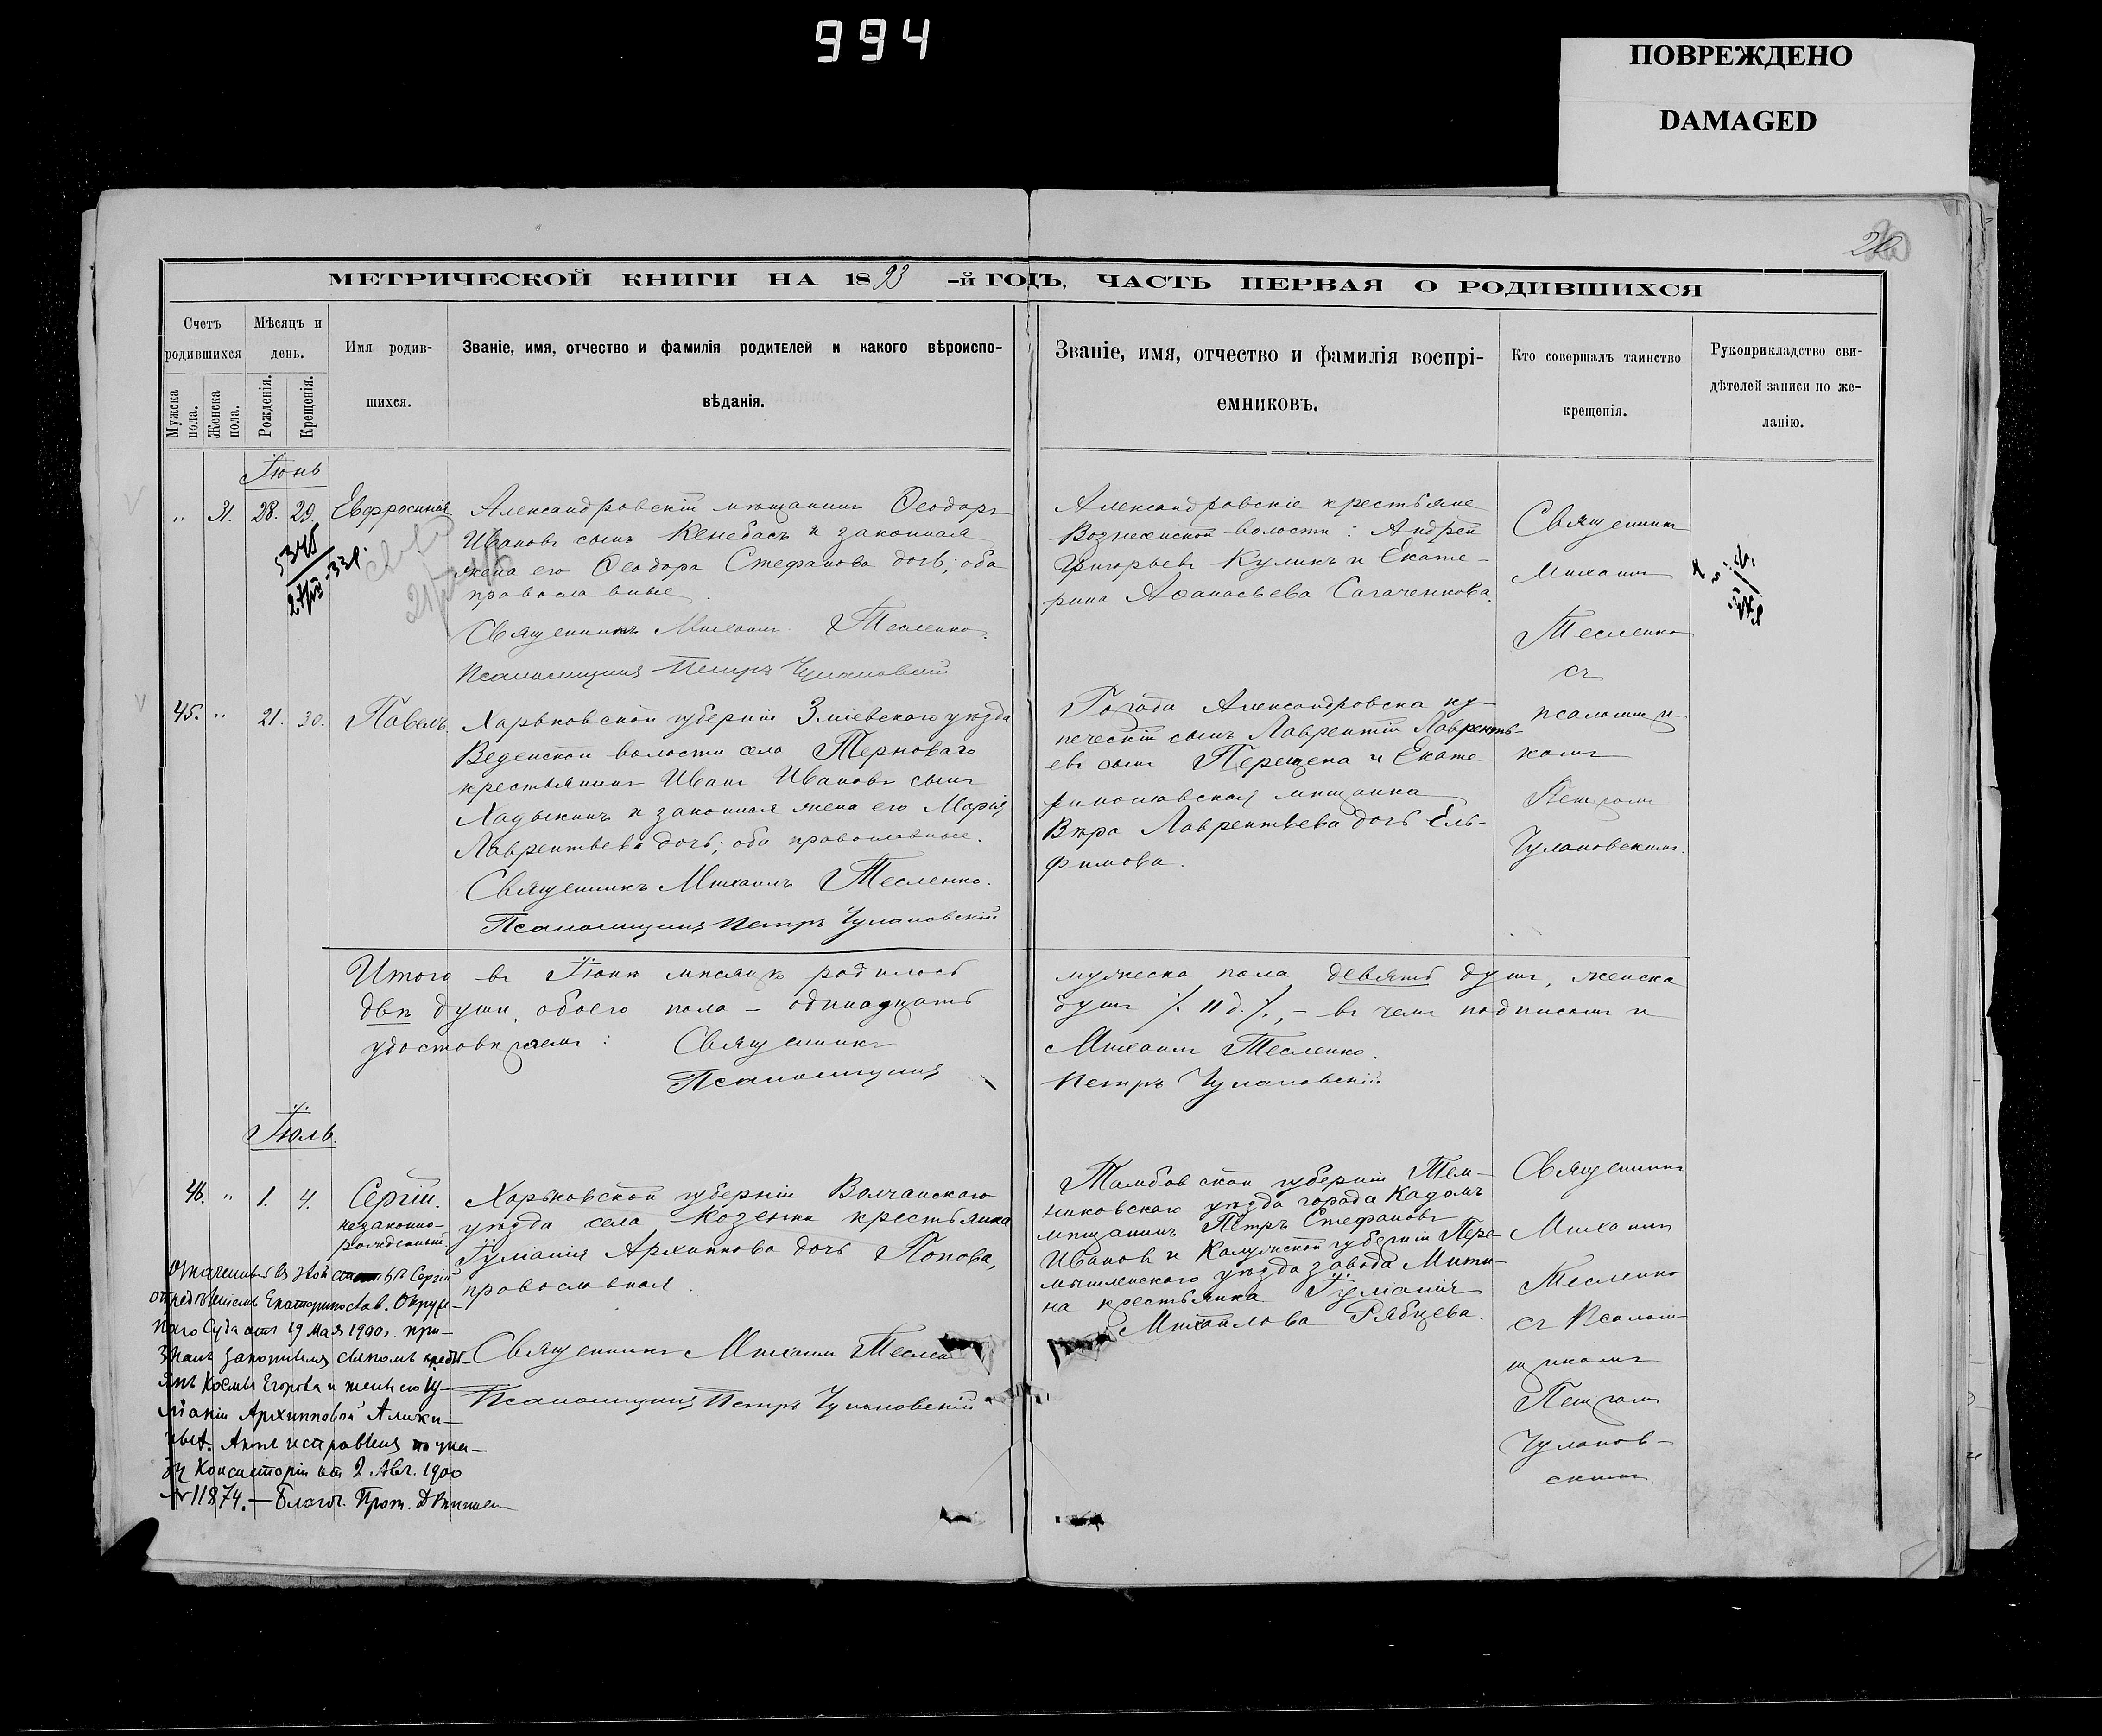 994
ПОВРЕЖДЕНО
DAMAGED
20
МЕТРИЧЕСКОЙ КНИГИ НА 1893 -й ГОДЪ, ЧАСТЬ ПЕРВАЯ О РОДИВШИХСЯ
Счетъ родившихся
Мужеска пола.
Женска пола.
Мѣсяцъ и день.
Рожденія.
Крещенія.
Имя родив-
шихся.
Званіе, имя, отчество и фамилія родителей и какого вѣроиспо-
вѣданія.
Званіе, имя, отчество и фамилія воспрі-
емниковъ.
Кто совершалъ таинство
крещенія.
Рукоприкладство сви-
дѣтелей записи по же-
ланію.
Іюнь
" 31. 28. 29. Евфросинія
Александровскій мѣщанинъ Ѳеодоръ
Ивановъ сынъ Кенебасъ и законная
жена его Ѳеодора Стефанова дочь; оба
православные.
Священникъ Михаилъ Тесленко.
Псаломщикъ Петръ Чулановскій
Александровскіе крестьяне
Вознесенской волости: Андрей
Григорьевъ Куликъ и Екате-
рина Аѳанасьева Сагаченкова.
Священникъ
Михаилъ
Тесленко
съ
псаломщи-
комъ
Петромъ
Чулановскимъ.
45. " 21. 30. Павелъ
Харьковской губерніи Зміевского уѣзда
Веденской волости села Терноваго
крестьянинъ Иванъ Ивановъ сынъ
Хадыкинъ и законная жена его Марія
Лаврентьева дочь; оба православные.
Священникъ Михаилъ Тесленко.
Псаломщикъ Петръ Чулановскій
Города Александровска ку-
печескій сынъ Лаврентій Лавренть-
евъ сынъ Перещепа и Екате-
ринославская мѣщанка
Вѣра Лаврентьева дочь Ель-
фимова.
Итого въ Іюнѣ мѣсяцѣ родилось
мужеска пола девять душъ, женска
двѣ души, обоего пола – одинадцать
душъ /. 11 д. /., – въ чемъ подписомъ и
удостовѣряемъ: Священникъ
Михаилъ Тесленко.
Псаломщикъ
Петръ Чулановскій.
Іюль.
46. " 1. 4. Сергій.
незаконно-
рожденный.
Харьковской губерніи Волчанского
уѣзда села Козенки крестьянка
Іуліанія Архиппова дочь Попова,
православная.
Священникъ Михаилъ Теслен
Псаломщикъ Петръ Чулановскій
Тамбовской губерніи Тем-
никовскаго уѣзда города Кадомъ
мѣщанинъ Петръ Стефановъ
Ивановъ и Калужской губерніи Пере-
мышленского уѣзда завода Мити-
на крестьянка Іуліанія
Михаилова Рябцева.
Священникъ
Михаилъ
Тесленко
съ Псалом-
щикомъ
Петромъ
Чуланов-
скимъ.
Означенный въ этой Сергій
опредѣленіемъ Екатеринослав. Окруж-
наго Суда отъ 19 Мая 1900 г. при-
знанъ законнымъ сыномъ крестья-
янъ Космы Егорова и жены его Іу-
ліаніи Архипповой
Актъ исправленъ по ука-
зу Консисторіи отъ 2 Авг. 1900
№ 11874. – Благоч. Прот.